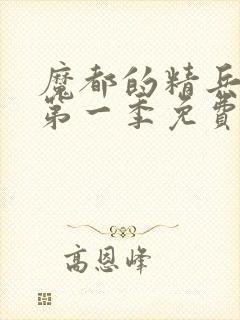 魔都的精兵
第一季免費
高恩峰